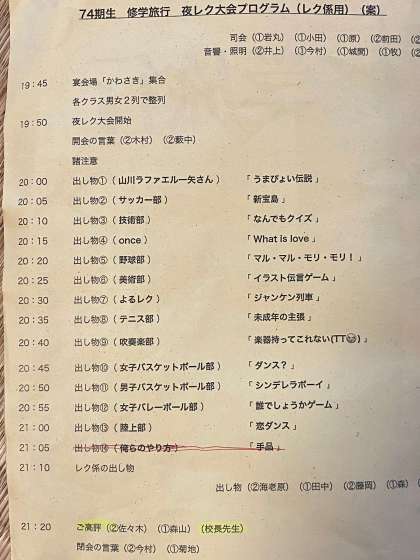 74期生 修学旅行 夜レク大会プログラム（レク係用）（案）
司会（①岩丸）（①小田）（①原）（②前田）（②
音響・照明（②井上）（①今村）（①城間）（①牧）（②
19：45 宴会場「かわさき」集合
各クラス男女２列で整列
19：50 夜レク大会開始
開会の言葉（②木村）（②藪中）
諸注意
20：00 出し物①（ 山川ラファエル一矢さん ）「 うまぴょい伝説 」
20：05 出し物②（ サッカー部 ）「 新宝島 」
20：10 出し物③（ 技術部 ）「 なんでもクイズ 」
20：15 出し物④（ once ）「 What is love 」
20：20 出し物⑤（ 野球部 ）「 マル・マル・モリ・モリ！ 」
20：25 出し物⑥（ 美術部 ）「 イラスト伝言ゲーム 」
20：30 出し物⑦（ よるレク ）「 ジャンケン列車 」
20：35 出し物⑧（ テニス部 ）「 未成年の主張 」
20：40 出し物⑨（ 吹奏楽部 ）「 楽器持ってこれない(TT😂) 」
20：45 出し物⑩（ 女子バスケットボール部 ）「 ダンス？ 」
20：50 出し物⑪（ 男子バスケットボール部 ）「 シンデレラボーイ 」
20：55 出し物⑫（ 女子バレーボール部 ）「 誰でしょうかゲーム 」
21：00 出し物⑬（ 陸上部 ）「 恋ダンス 」
21：05 出し物⑭（ 俺らのやり方 ）「 手品 」
21：10 レク係の出し物
出し物（②海老原）（①田中）（②藤岡）（①森）（
21：20 ご高評（②佐々木）（①森山）（校長先生）
閉会の言葉（②今村）（①菊地）